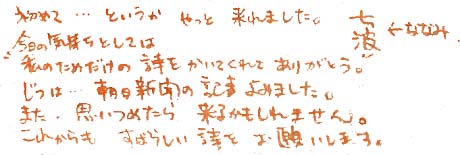 初めて…というか やっと 来れました。
今日の気持ちとしては
"私のためだけの 詩を かいてくれて ありがとう。"
じつは… 朝日新聞の記事 よめました。
また、思いつめたら 来るかもしれません。
これからも すばらしい 詩を お願いします。
七波 ←ななみ